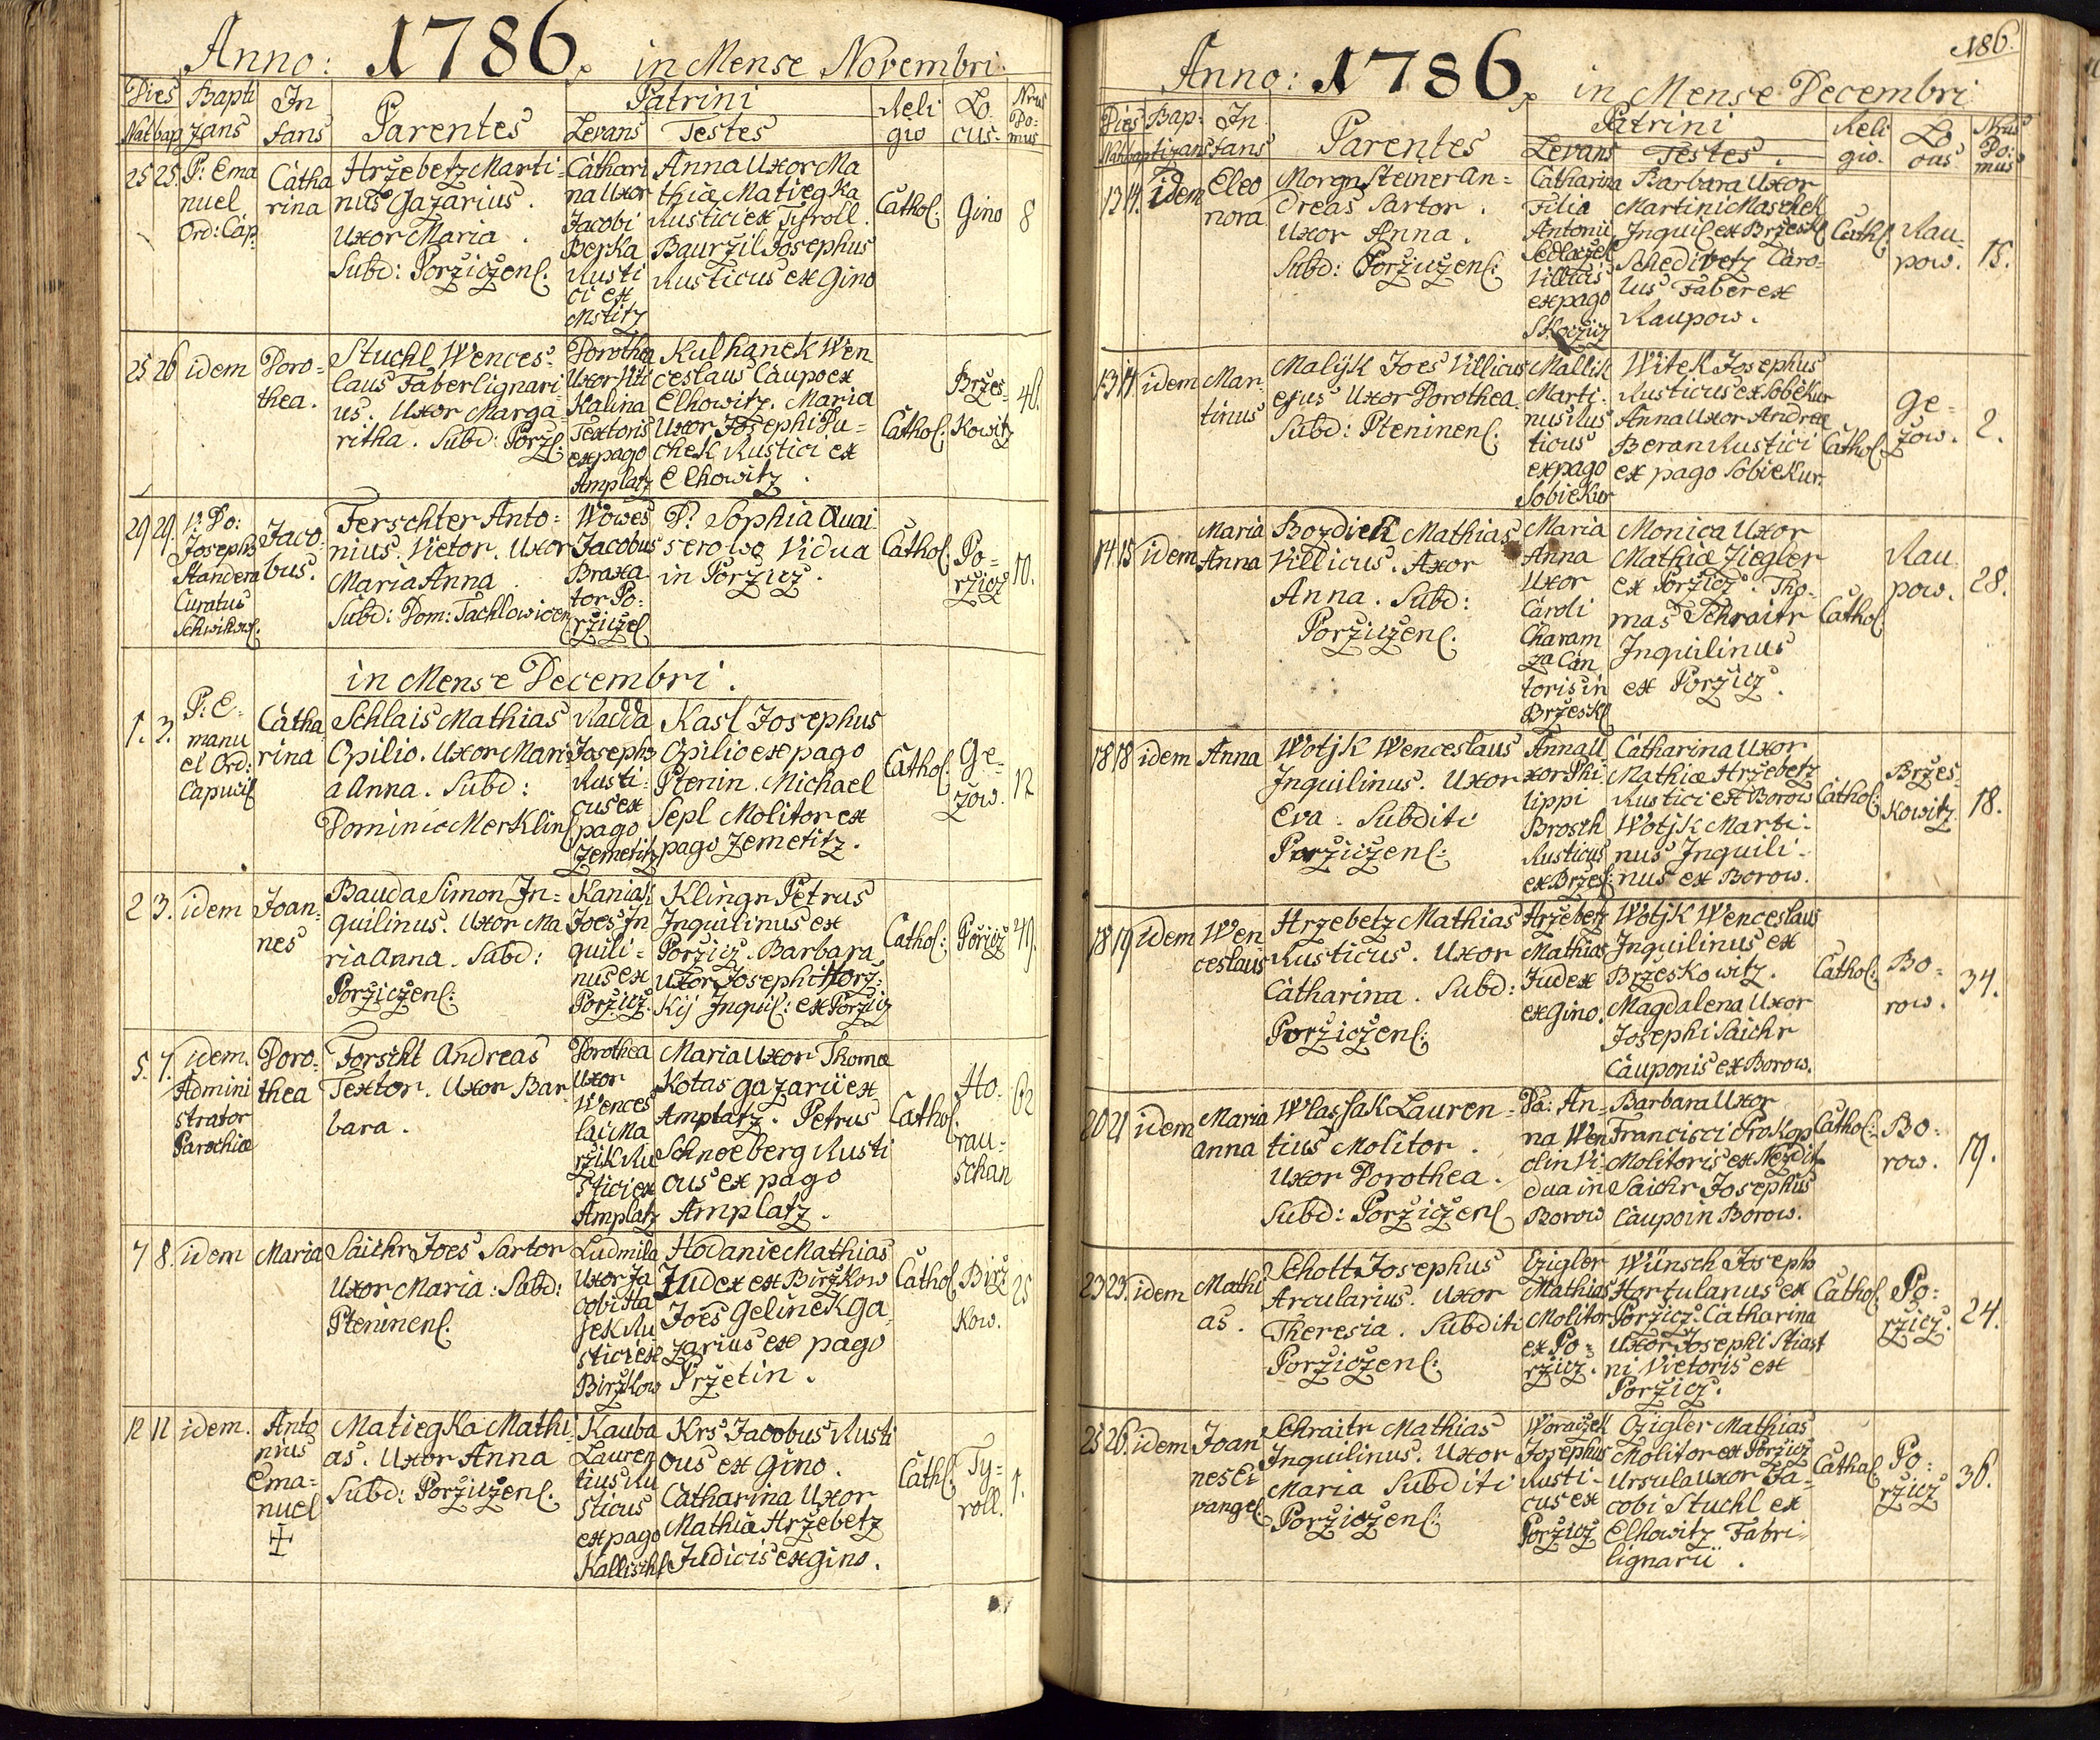 Anno: 1786. in Mense Novembri.
Dies Bapti In Patrini Reli Lo Nrus
Nat bap zans fans Parentes Levans Testes gio cus Do:mus
25 25. P: Ema
nuel
Ord: Cap:
Catha
rina
Hržebetz Marti-
nus Gazarius.
Uxor Maria.
Subd: Poržiczen:
Cathari
na Uxor
Jacobi
Berka
Rusti
ci ex
Mstitz
Anna Uxor Ma
thiæ Matiegka
Rustici ex Tyroll.
Bauržil Josephus
Rusticus ex Gino
Cathol: Gino 8
25 26 idem
Doro-
thea.
Stuchl Wences-
laus Faber lignari
us. Uxor Marga-
ritha. Subd: Porž:
Dorothea
Uxor Viti
Kalina
Textoris
ex pago
Amplatz
Kulhanek Wen
ceslaus Caupo ex
Elhowitz. Maria
Uxor Josephi Pu-
chek Rustici ex
Elhowitz.
Cathol:
Bržes-
kowitz
46.
29 29. P: Do:
Josephs
Standera
Curatus
Schwihow:
Jaco
bus.
Ferschter Anto-
nius. Vietor. Uxor
Maria Anna
Subd: Dom: Tachlowicen
Wowes
Jacobus
Braxa
tor Po-
ržicz:
D: Sophia Quai
serowa Vidua
in Poržicz.
Cathol:
Po-
ržicz
10.
in Mense Decembri.
1. 3. P: E-
manu
el Ord:
Capuci:
Catha
rina
Schlais Mathias
Opilio. Uxor Mari
a Anna. Subd:
Dominic Merklin:
Radda
Josephs
Rusti-
cus ex
pago
Zemetitz
Kasl Josephus
Opilio ex pago
Ptenin. Michael
Sepl Molitor ex
pago Zemetitz.
Cathol:
Ge-
zow.
12
2 3. idem
Joan-
nes
Bauda Simon In-
quilinus. Uxor Ma
ria Anna. Subd:
Poržiczen:
Kaniak
Joes In
quili-
nus ex
Poržicz.
Klingr Petrus
Inquilinus ex
Poržicz. Barbara
uxor Josephi Horz-
kij Inquil: ex Poržicz
Cathol: Poržicz 49.
5. 7. idem.
Admini
strator
Parochiæ
Doro-
thea
Forscht Andreas
Textor. Uxor Bar-
bara.
Dorothea
Uxor
Wences
lai Ma
ržik Ru
stici ex
Amplatz
Maria Uxor Thomæ
Kotas gazarii ex
Amplatz. Petrus
Schnoeberg Rusti
cus ex pago
Amplatz.
Cathol:
Ho-
rau-
schan
62
7 8. idem Maria
Saichr Joes Sartor
Uxor Maria: Subd:
Pteninen:
Ludmila
Uxor Ja
cobi Ha
sek Ru
stici ex
Biržkow
Hodanie Mathias
Judex ex Biržkow
Joes Gelinek Ga
zarius ex pago
Pržetin.
Cathol:
Birž
kow.
25
12 12 idem.
Anto
nius
Ema-
nuel
Matiegka Mathi-
as. Uxor Anna
Subd: Poržiczen:
Kauba
Lauren
tius Ru
sticus
ex pago
Kallisch:
Krs Jacobus Rusti
cus ex Gino.
Catharina Uxor
Mathiæ Hržebetz
Judicis ex Gino.
Cath:
Ty-
roll.
1.
186.
Anno: 1786. in Mense Decembri
Dies Bap- In Patrini Reli Lo Nrus
Nat bap tizans fans Parentes Levans Testes. gio. cus Do:mus
13 14. idem
Eleo
nora
Morgnsteiner An-
dreas Sartor.
Uxor Anna.
Subd: Poržiczen:
Catharina
Filia
Antonii
Sedlaczek
Villicus
ex pago
Skoczicz
Barbara Uxor
Martini Maschek
Inquil: ex Bržesk:
Schediwetz Caro-
lus Faber ex
Raupow.
Cath:
Rau-
pow.
15.
13 14 idem
Mar-
tinus
Malÿk Joes Villicus
ejus Uxor Dorothea
Subd: Pteninen:
Mallik
Marti-
nus Rus
ticus
ex pago
Sobiekur
Witek Josephus
Rusticus ex Sobiekur
Anna Uxor Andreæ
Beran Rustici
ex pago Sobiekur.
Cathol:
Ge-
zow.
2.
14 15 idem
Maria
Anna
Bozdiek Mathias
Villicus. Axor
Anna. Subd:
Poržiczen:
Maria
Anna
Uxor
Caroli
Charam
za Can
toris in
Bržesk:
Monica Uxor
Mathiæ Ziegler
ex Poržicz. Tho-
mas Schraitr
Inquilinus
ex Poržicz.
Cathol:
Rau
pow.
28.
18 18 idem Anna
Wotjk Wenceslaus
Inquilinus. Uxor
Eva. Subditi
Poržiczen:
Anna U
xor Phi-
lippi
Brosch
Rusticus
ex Bržes:
Catharina Uxor
Mathiæ Hržebetz
Rustici ex Borow
Wotjk Marti-
nus Inquili-
nus ex Borow.
Cathol:
Bržes-
kowitz
18.
18 19 idem
Wen
ceslaus
Hrzebetz Mathias
Rusticus. Uxor
Catharina. Subd:
Poržiczen:
Hržebetz
Mathias
Judex
ex Gino.
Wotjk Wenceslaus
Inquilinus ex
Bržeskowitz.
Magdalena Uxor
Josephi Saichr
Cauponis ex Borow.
Cathol:
Bo-
row.
34.
20 21 idem
Maria
Anna
Wlassak Lauren-
tius Molitor.
Uxor Dorothea.
Subd: Poržiczen:
Da: An-
na Wen
clin Vi-
dua in
Borow
Barbara Uxor
Francisci Prokop
Molitoris ex Nezdit:
Saichr Josephus
Caupo in Borow.
Cathol:
Bo-
row.
19.
23 23. idem
Mathi
as.
Schott Josephus
Arcularius. Uxor
Theresia. Subditi
Poržiczen:
Czigler
Mathias
Molitor
ex Po-
ržicz.
Wünsch Joseph
Hortulanus ex
Poržicz. Catharina
Uxor Josephi Stiast
ni Vietoris ex
Poržicz.
Cathol:
Po-
ržicz.
24.
25 26. idem
Joan
nes E:
vangel:
Schraitr Mathias
Inquilinus. Uxor
Maria Subditi
Poržiczen:
Woraczek
Josephus
Rusti-
cus ex
Poržicz
Czigler Mathias
Molitor ex Poržicz
Ursula Uxor Ja-
cobi Stuchl ex
Elhowitz Fabri-
lignarii.
Cathol:
Po-
ržicz
36.